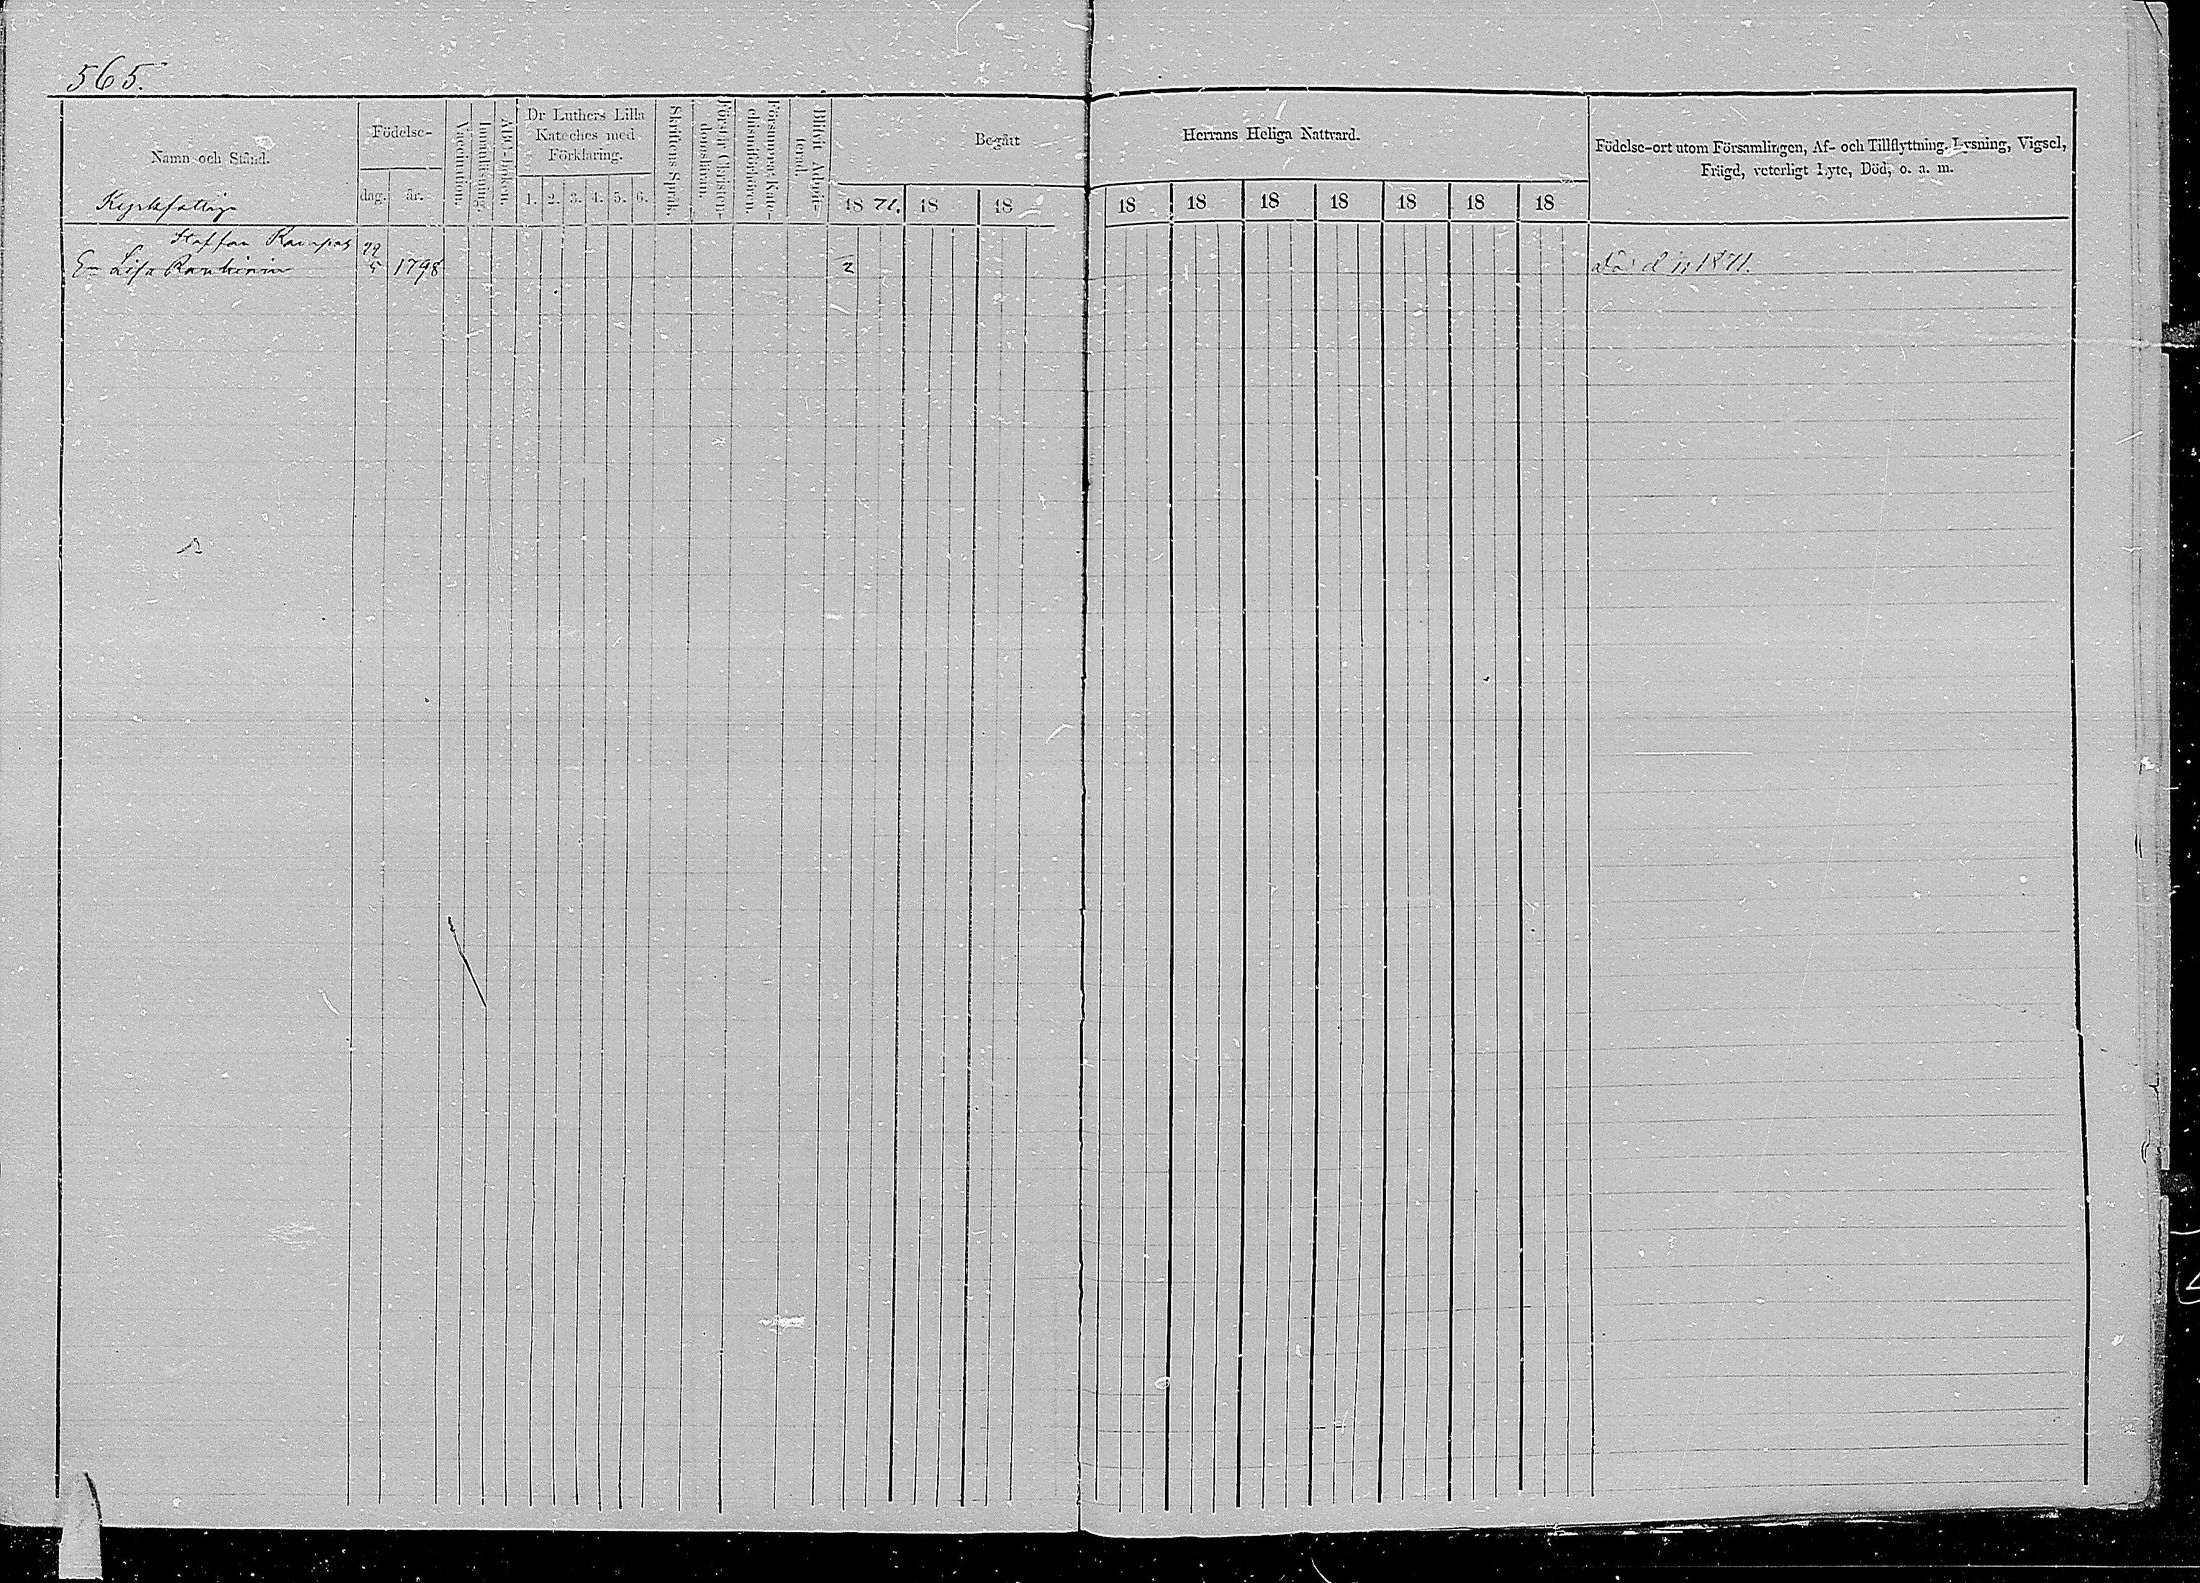 565.
Namn och Stånd.
Kyrkfattige
Födelse-
dag. år.
Vaccination.
Innanläsning.
ABC-boken.
Dr Luthers Lilla
Kateches med
Förklaring.
1. 2. 3. 4. 5. 6.
Skriftens Språk.
Förstår Christen-
domsläran.
Försummat Kate-
chismiförhören.
Blifvit Admit-
terad.
Begått
Herrans Heliga Nattvard.
18 71. 18 18 18 18 18 18 18 18 18
Födelse-ort utom Församlingen, Af- och Tillflyttning. Lysning, Vigsel,
Frägd, veterligt Lyte, Död, o. a. m.
Staffan
E– Lisa 5 1798 2 Död d 1871.